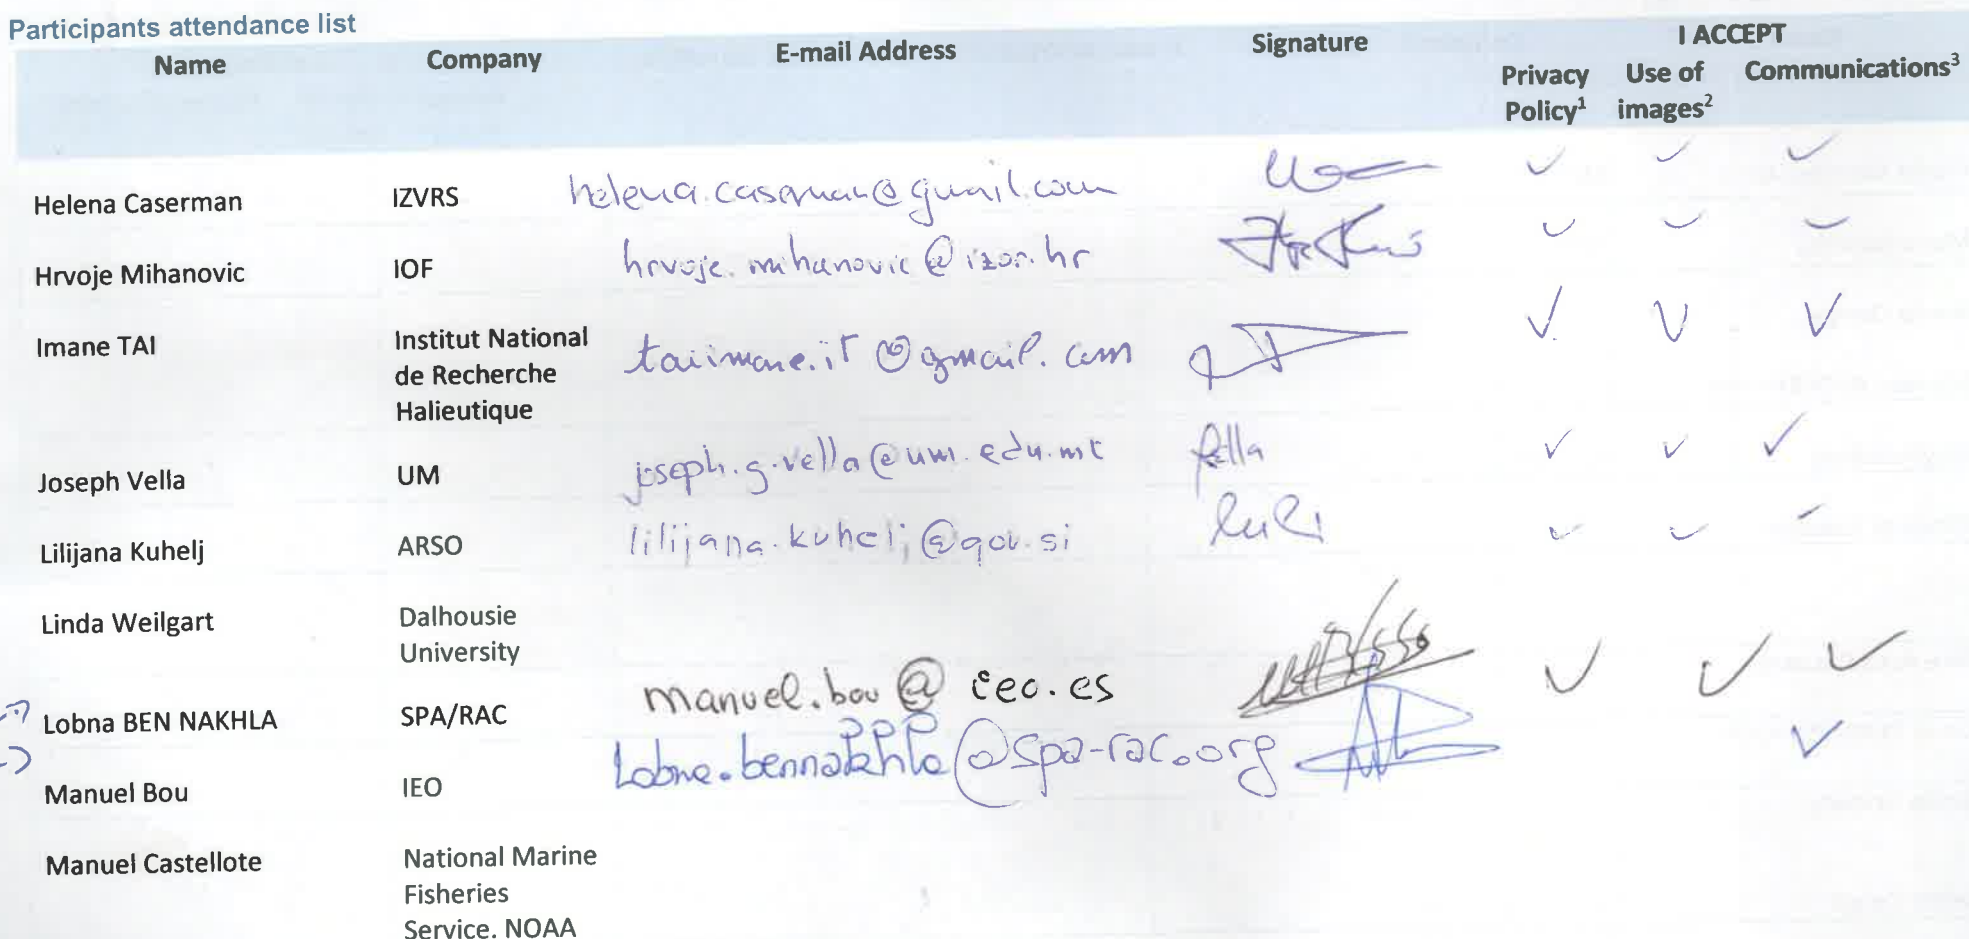 Participants attendance list
I ACCEPT
Name Company E-mail Address Signature Privacy Policy¹ Use of images² Communications³
Helena Caserman IZVRS helena.caserman@gmail.com
Hrvoje Mihanovic IOF hrvoje.mihanovic@izor.hr
Imane TAI Institut National
de Recherche
Halieutique
taiimane.it@gmail.com
Joseph Vella UM joseph.g.vella@um.edu.mt
Lilijana Kuhelj ARSO lilijana.kuhelj@gov.si
Linda Weilgart Dalhousie
University
manuel.bou@ieo.es
Lobna BEN NAKHLA SPA/RAC
Lobna.bennakhla@spa-rac.org
Manuel Bou IEO
Manuel Castellote National Marine
Fisheries
Service. NOAA